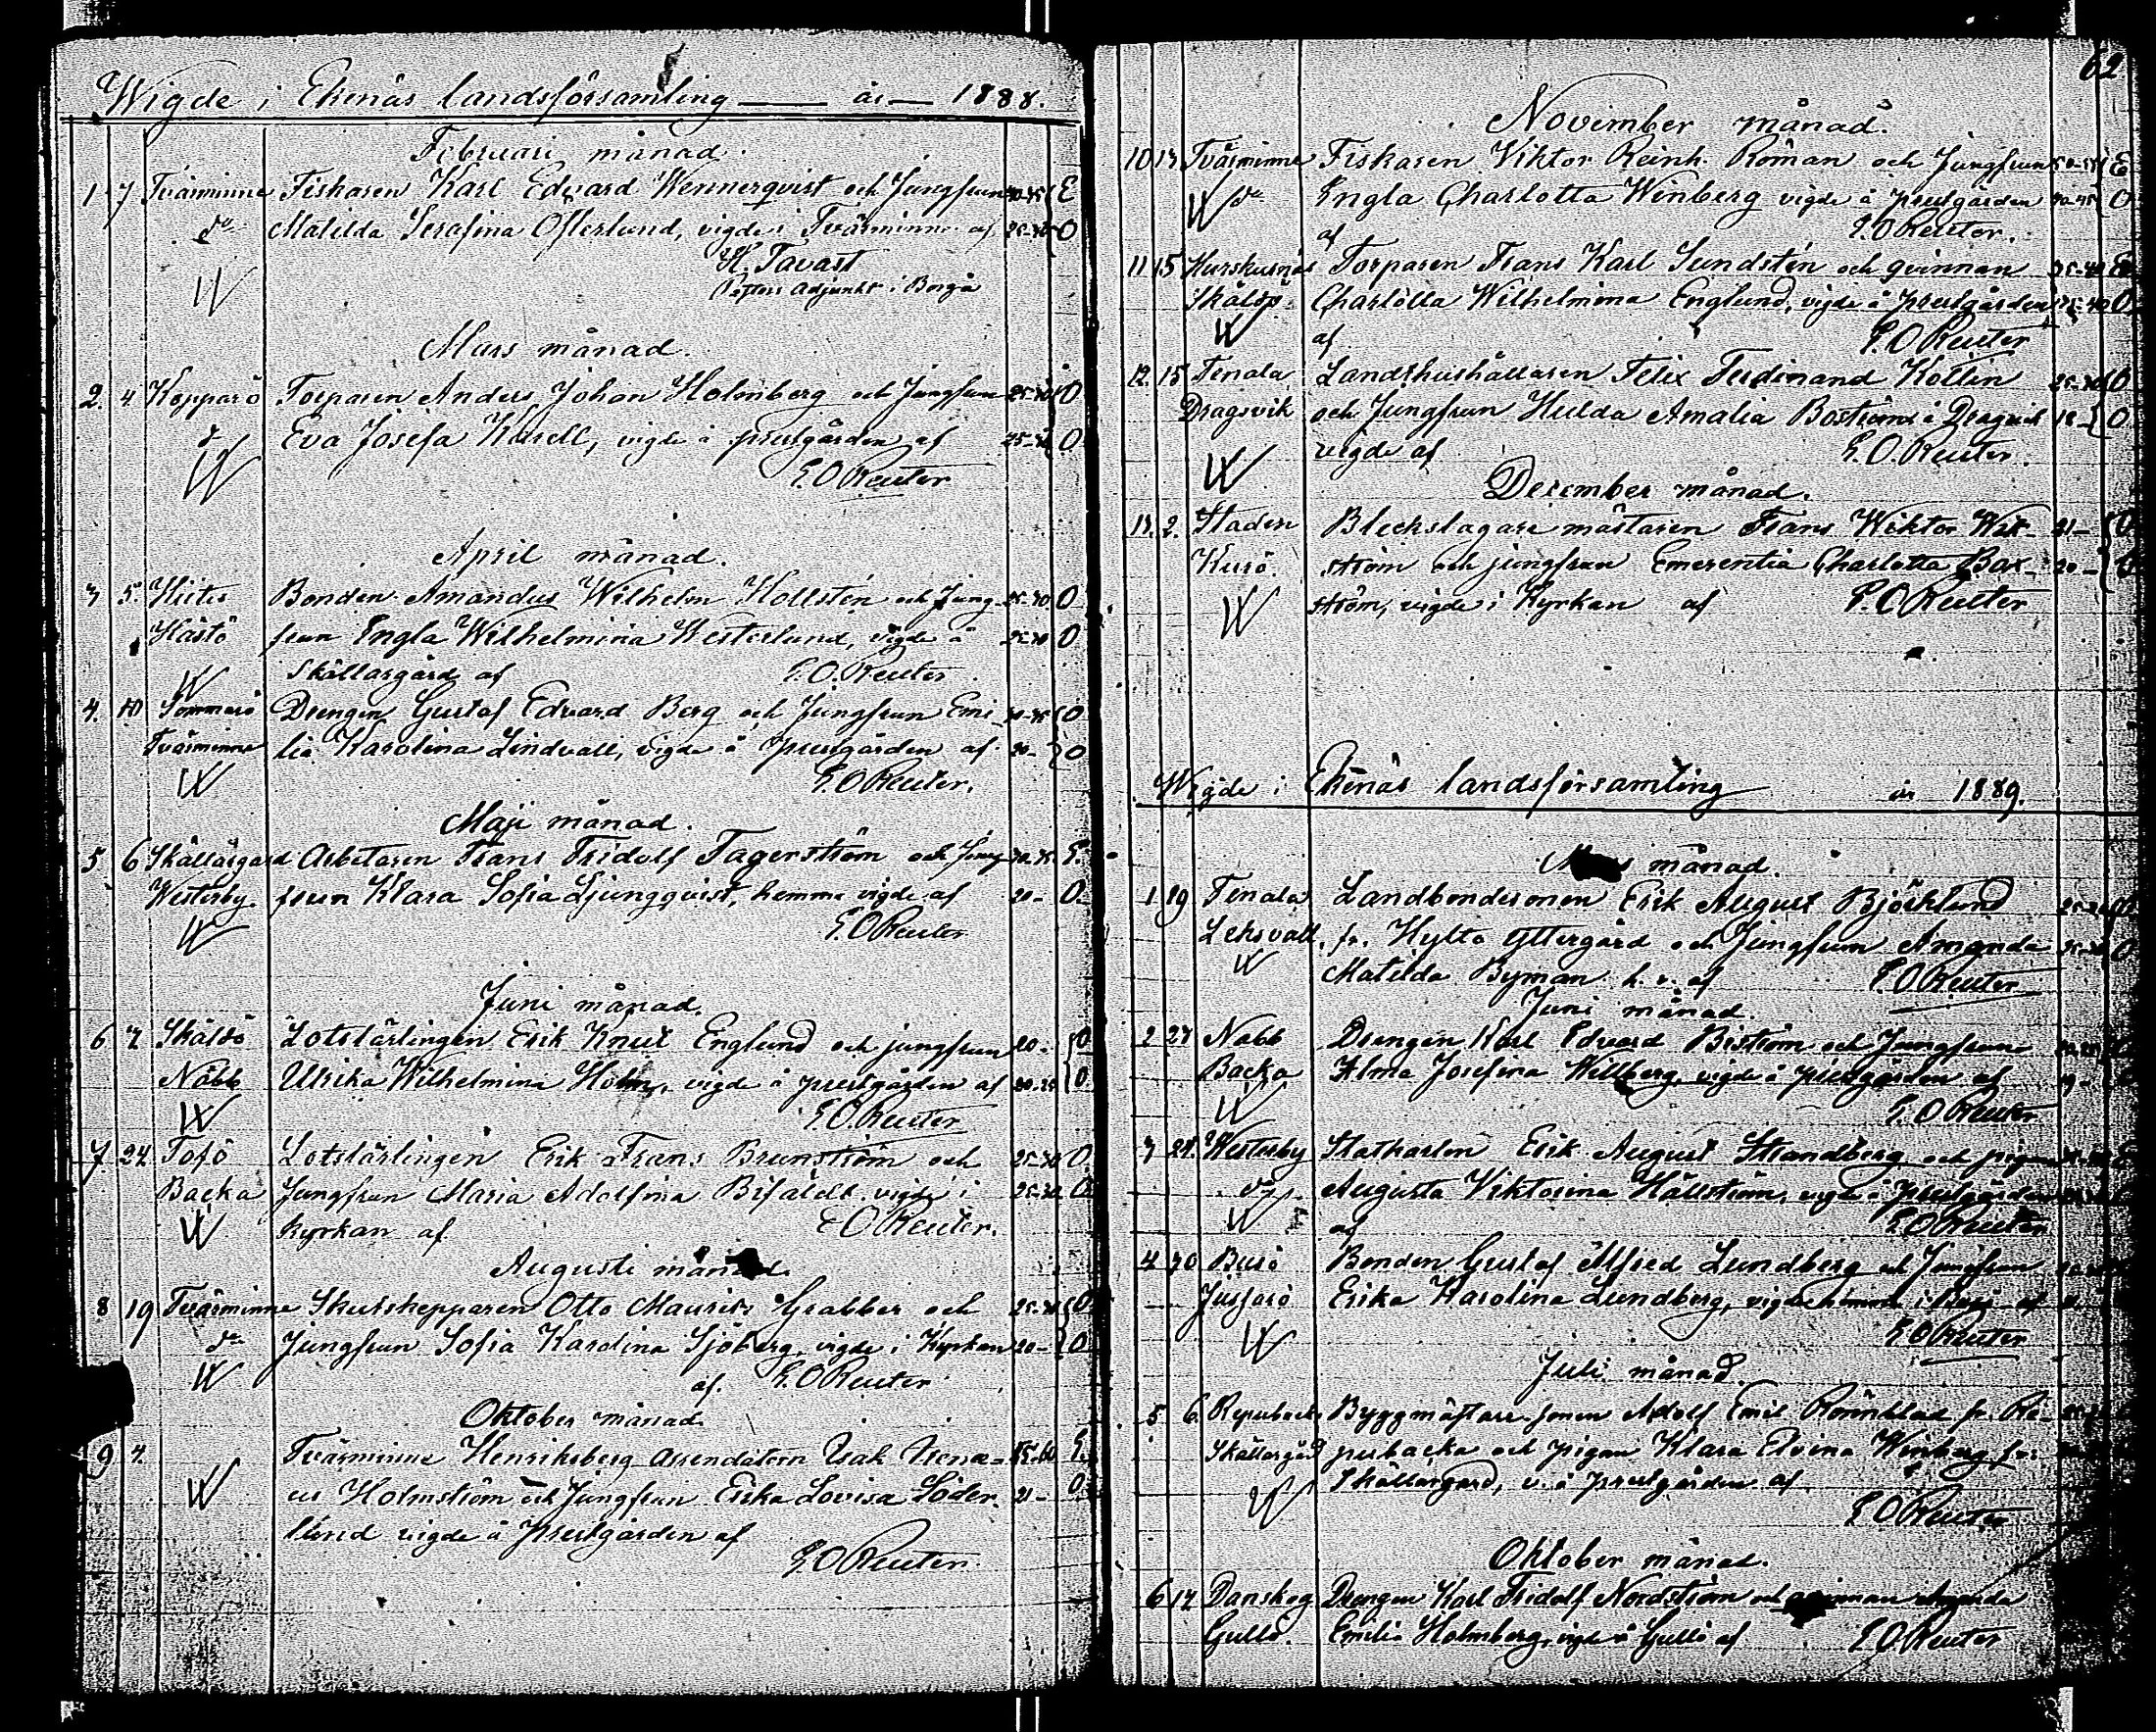 Wigde i Ekenäs landsförsamling — år — 1888.
Februari månad.
1 7 Tvärminne Fiskaren Karl Edvard Wennerqvist och Jungfrun 30-35 E
do Matilda Serafina Österlund, vigde i Tvärminne af 25-30 O
W K. Tavast
Pastors adjunkt i Borgå
Mars månad.
2. 4. Kopparö Torparen Anders Johan Holmberg och Jungfrun 25-30 O
d Eva Josefa Karell, vigde å prestgården af 25-30 O
W E O Reuter
April månad.
3 5. Hitis Bonden Amandus Wilhelm Hollstén och Jung- 25-30 O
Hästö frun Engla Wilhelmina Westerlund, vigde å 25-30 O
W Skållargård af E. O. Reuter
4. 10 Sommarö Drengen Gustaf Edvard Berg och Jungfrun Emi 30-35 O
Tvärminne lia Karolina Lindvall, vigde å prestgården af 20- O
W E. O Reuter.
Maji månad.
5. 6 Skållargård Arbetaren Frans Fridolf Fagerström och Jung 30-35 E.
Westerby. frun Klara Sofia Ljungqvist, hemma vigde af 20- O.
W E. O Reuter
Juni månad.
6 7 Skåldö Lotslärlingen Erik Knut Englund och jungfrun 20- O
Näbb Ulrika Wilhelmina Holm, vigde å prestgården af 20-25 O
W E. O. Reuter
7 24 Tofö Lotslärlingen Erik Frans Brunström och 25-30 O.
Backa Jungfrun Maria Adolfina Bifaldt vigde i 25-30 O
W kyrkan af E O Reuter.
Augusti månad.
8 19 Tvärminne Skutskepparen Otto Maurits Grabber och 25-30 O
do Jungfrun Sofia Karolina Sjöberg, vigde i Kyrkan 20- O
W af. E. O Reuter
Oktober månad.
9 4. Tvärminne Henriksberg Arrendatorn Isak Irenæ- 55-60 E.
W us Holmström och Jungfrun Erika Lovisa Söder- 21- O
lund vigde å Prestgården af
E. O Reuter.
62
November månad.
10 13 Tvärminne Fiskaren Viktor Reinh. Röman och Jungfrun 50-55 E
W do Engla Charlotta Winberg vigde å prestgården 40-45 O
af E. O Reuter.
11 15 Torparen Frans Karl Sundstén och qvinnan 35-40 E
Skåldö. Charlotta Wilhelmina Englund, vigde å prestgården 35-40 O
W af E. O Reuter
12. 15 Tenala Landthushållaren Felix Ferdinand Kollin 25-30 O
Dragsvik och Jungfrun Hulda Amalia Boström i Dragsvik 18- O
W vigde af E. O. Reuter.
December månad.
13. 2. Staden Bleckslagare mästaren Frans Wiktor Wik- 21- O
Kusö. ström och jungfrun Emerentia Charlotta Bax- 20- O
W ström, vigde i Kyrkan af E. O Reuter
Wigde i Ekenäs landsförsamling år 1889.
månad.
1 19 Tenala Landbondesonen Erik August Björklund O
Leksvall. fr. Hylta Yttergård och Jungfrun Amanda O
W Matilda Byman h. v. af E. O Reuter
Juni månad.
2 24 Näbb Drengen Karl Edvard Biström och Jungfrun
Backa Alma Josefina Willberg, vigde å prestgården af
W E. O Reuter
3 24. Westerby Statkarlen Erik August Strandberg och pigan
do Augusta Viktorina Hällström, vigde å prestgården
W af E O Reuter
4 30 Busö Bonden Gustaf Alfred Lundberg och Jungfrun
Jussarö Erika Karolina Lundberg, vigde hemma i af
W E O Reuter
Juli månad.
5 6. Byggmästare sonen Adolf Emil Rönnblad fr. Re-
Skållargård pubacka och pigan Klara Elvina Winberg fr.
Skållargård, v. å prestgården af
W E O Reuter
Oktober månad.
6 Danskog Drengen Karl Fridolf Nordström och qvinnan Amanda
Gullö. Emilia Holmberg, vigde å Gullö af E O Reuter